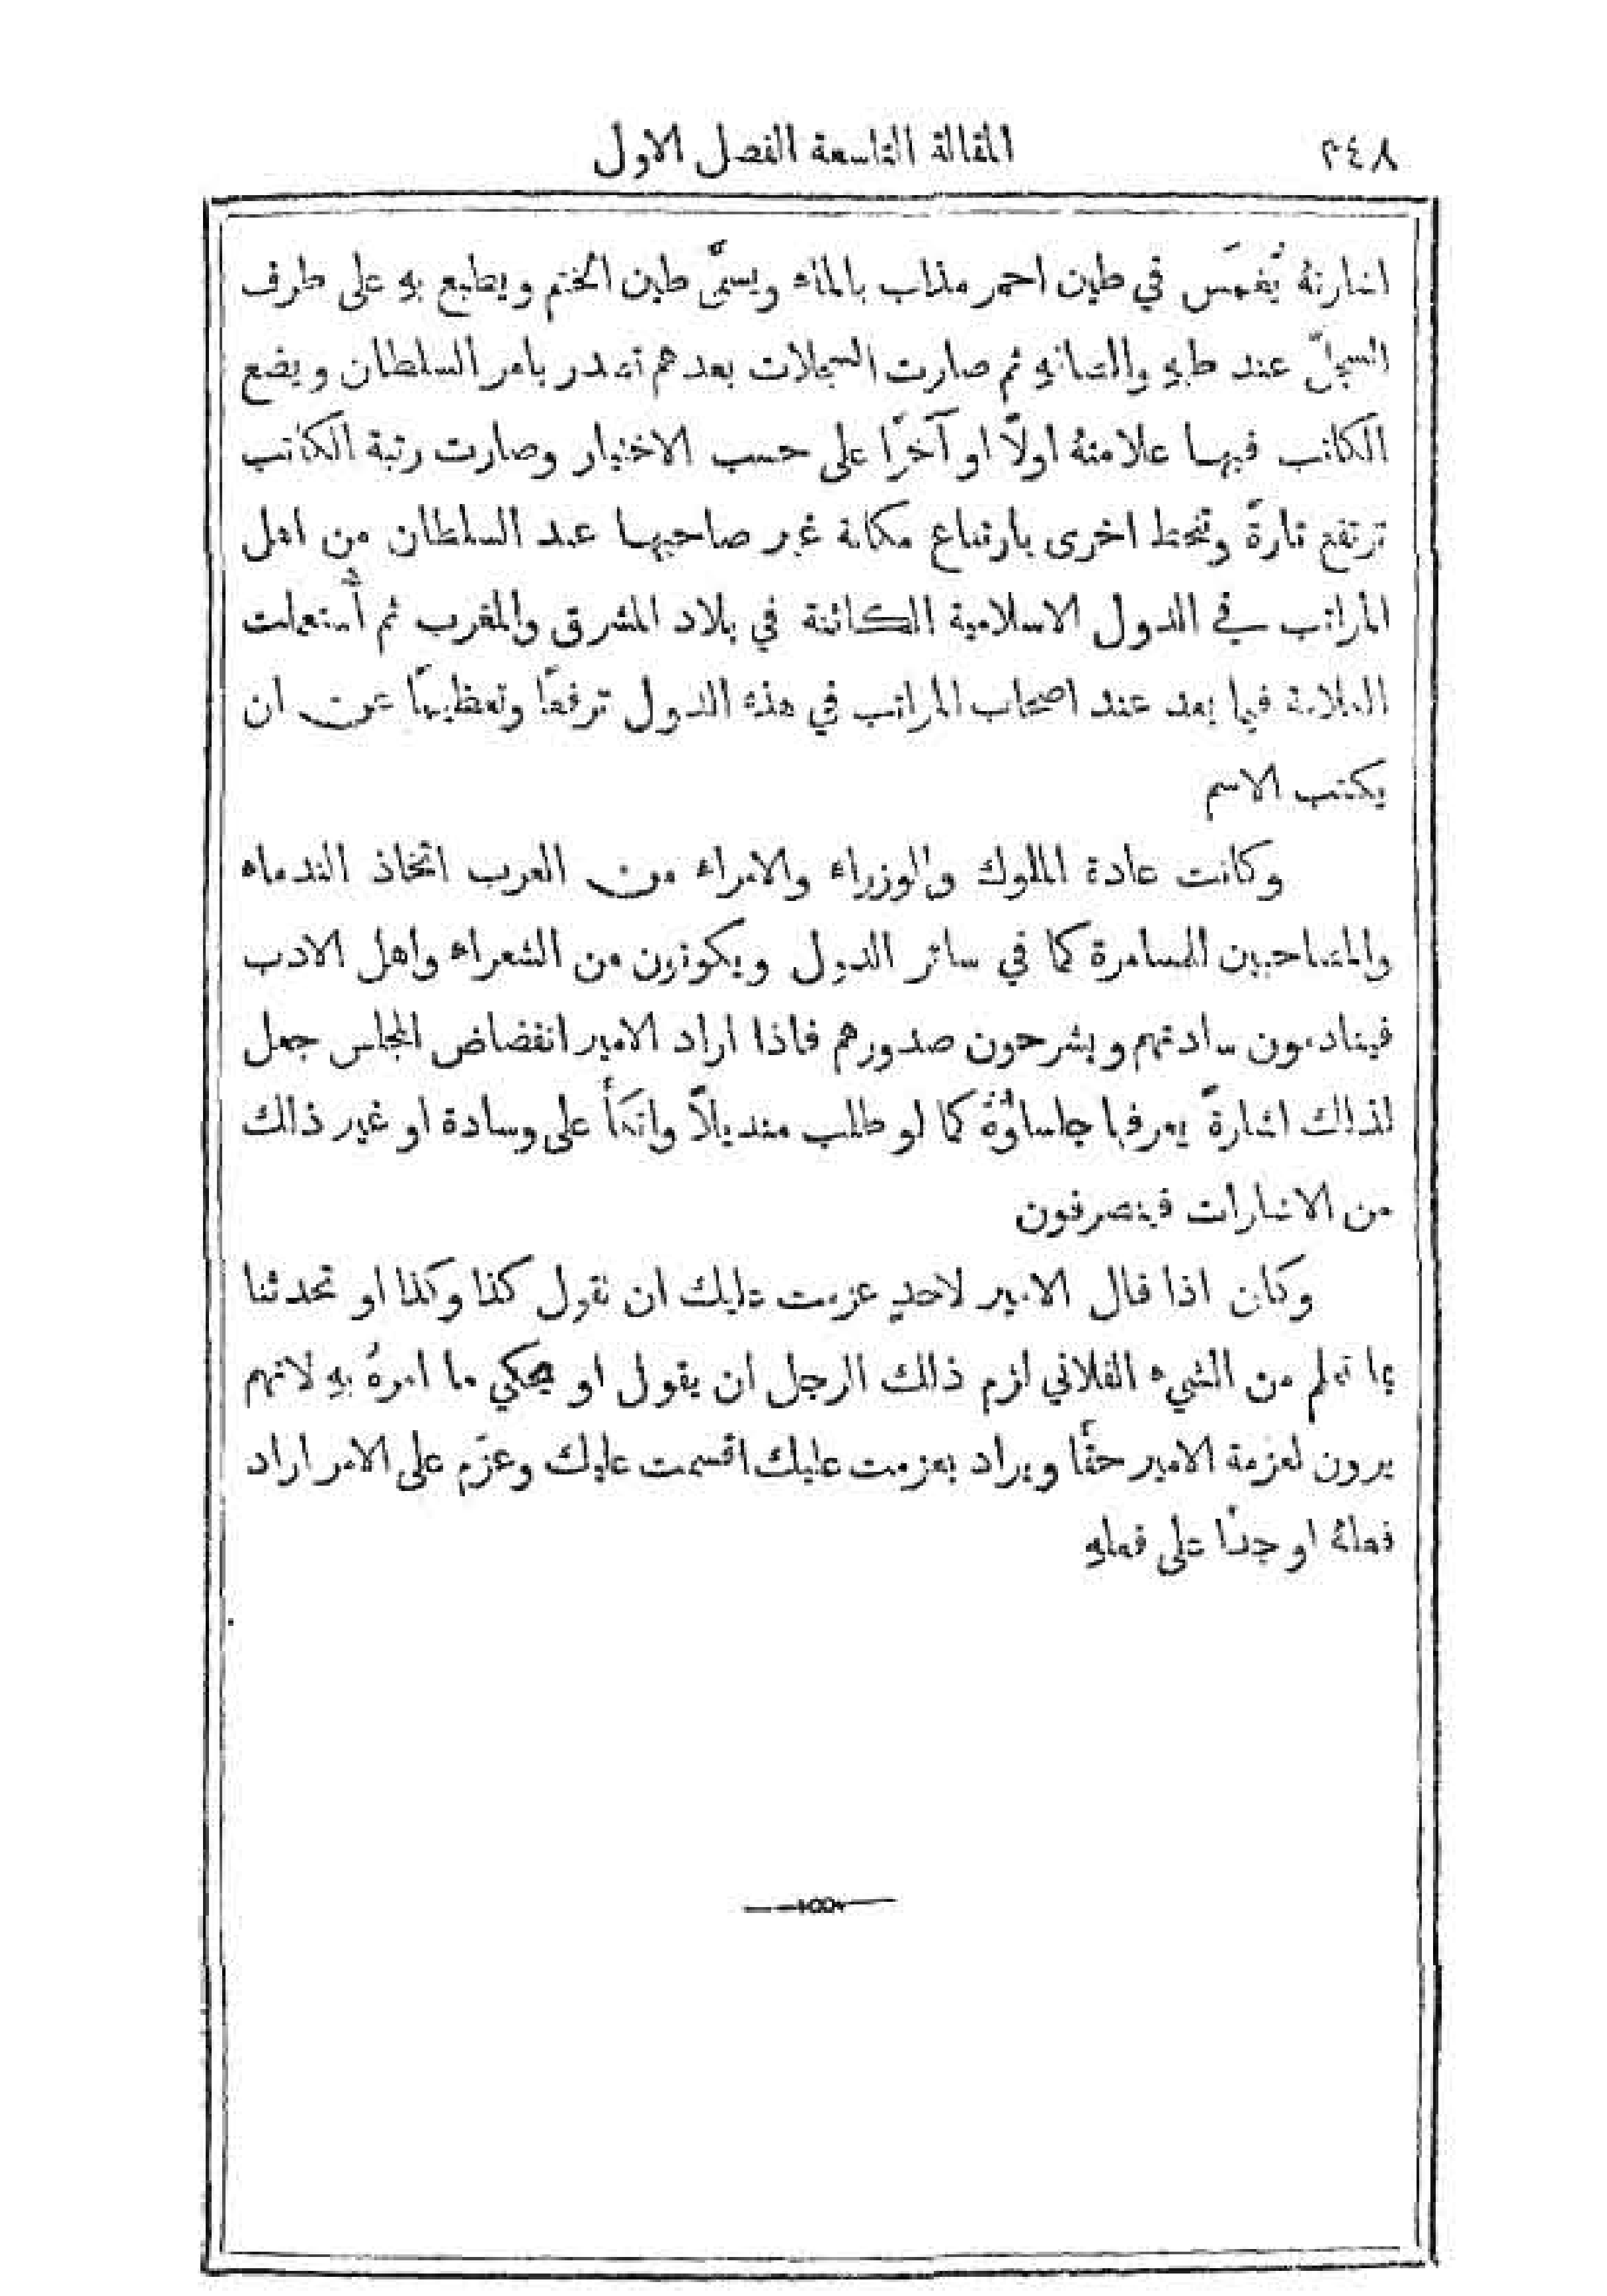 ٢٤٨
المقالة التاسعة الفصل الاول
اشارتهُ يُغمَس في طين احمر مذاب بالماء ويسمَّى طين الختم ويطبع بهِ على طرف
السجلّ عند طيهِ والصاقهِ ثم صارت السجلات بعدهم تصدر بامر السلطان ويضع
الكاتب فيها علامتهُ اولًا او آخرًا على حسب الاختيار وصارت رتبة الكاتب
ترتفع تارةً وتنحط اخرى بارتفاع مكانة غير صاحبها عند السلطان من اهل
المراتب في الدول الاسلامية الكائنة في بلاد المشرق والمغرب ثم أُستعملت
العلامة فيما بعد عند اصحاب المراتب في هذه الدول ترفعًا وتعظيمًا عن ان
يكتب الاسم
وكانت عادة الملوك والوزراء والامراء من العرب اتخاذ الندماء
والمصاحبين للمسامرة كما في سائر الدول ويكونون من الشعراء واهل الادب
فينادمون سادتهم ويشرحون صدورهم فاذا اراد الامير انفضاض المجلس جعل
لذلك اشارةً يعرفها جلساؤُهُ كما لو طلب منديلًا واتكأَ على وسادة او غير ذلك
من الاشارات فينصرفون
وكان اذا قال الامير لاحدٍ عزمت عليك ان تقول كذا وكذا او تحدثنا
بما تعلم من الشيء الفلاني لزم ذلك الرجل ان يقول او يحكي ما امرهُ بهِ لانهم
يرون لعزمة الامير حقًّا ويراد بعزمت عليك اقسمت عليك وعزَم على الامر اراد
فعلهُ او جدَّ على فعلهِ